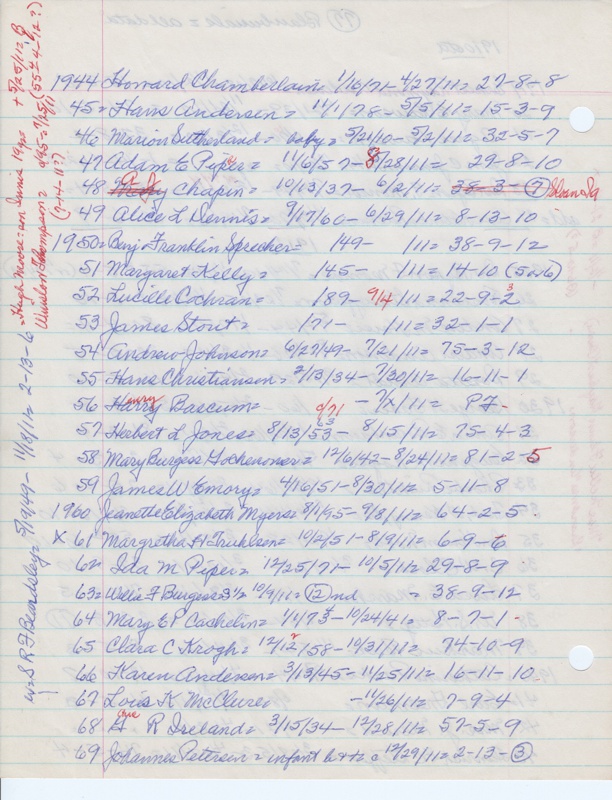 1944 Howard Chamberlain 1/16/71- 4/27/11= 27-8-8
45= Hans Andersen= 11/1/78- 5/5/11= 15-3-9
46 Marion Sutherland= baby= 5/21/10- 5/2/11= 32-5-7
47 Adam E Piper= 11/6/57- 5/28/11= 29-8-10
48 Chapin= 10/13/37- 6/2/11= 38-3- 7
49 Alice L Dennis= 9/17/60- 6/29/11= 8-13-10
1950= Benj Franklin Sprecher= /49- /11= 38-9-12
51 Margaret Kelly= /45- /11= 14-10 (5 or 6)
52 Lucille Cochran= /89- 9/4/11= 22-9-2
53 James Stout= /71- /11= 32-1-1
54 Andrew Johnson= 6/27/49- 7/21/11= 75-3-12
55 Hans Christianson= 2/13/34- 7/30/11= 16-11-1
56 Henry Bascum= /71 - 7/x/11= PF-
57 Herbert L Jones= 8/13/53- 8/15/11= 75-4-3
58 Mary Burgess = 12/6/42- 8/24/11= 81-2-5
59 James W Emory= 4/16/51- 8/30/11= 5-11-8
1960 Jeanette Elizabeth Myers= 8/1/95- 9/8/11= 64-2-5
X 61 Margretha H = 10/2/51- 8/19/11= 6-9-6
62 Ida M Piper= 12/25/71- 10/5/11= 29-8-9
63= F Burgess= 3 1/2 10/9/11= 12 nd = 38-9-12
64 Mary E P Cachelin= 1/1/73- 10/24/41= 8-7-1
65 Clara C Krogh= 12/12/58- 10/31/11= 74-10-9
66 Karen Andersen= 3/13/45- 11/25/11= 16-11-10
67 Lois K McClure= - 11/26/11= 7-9-4
68 R Ireland= 3/15/34- 12/28/11= 57-5-9
69 Johannes Peterson= infant 12/29/11= 2-13-3
R F Beardsley= 5/19/49- 11/18/11= 2-13-6